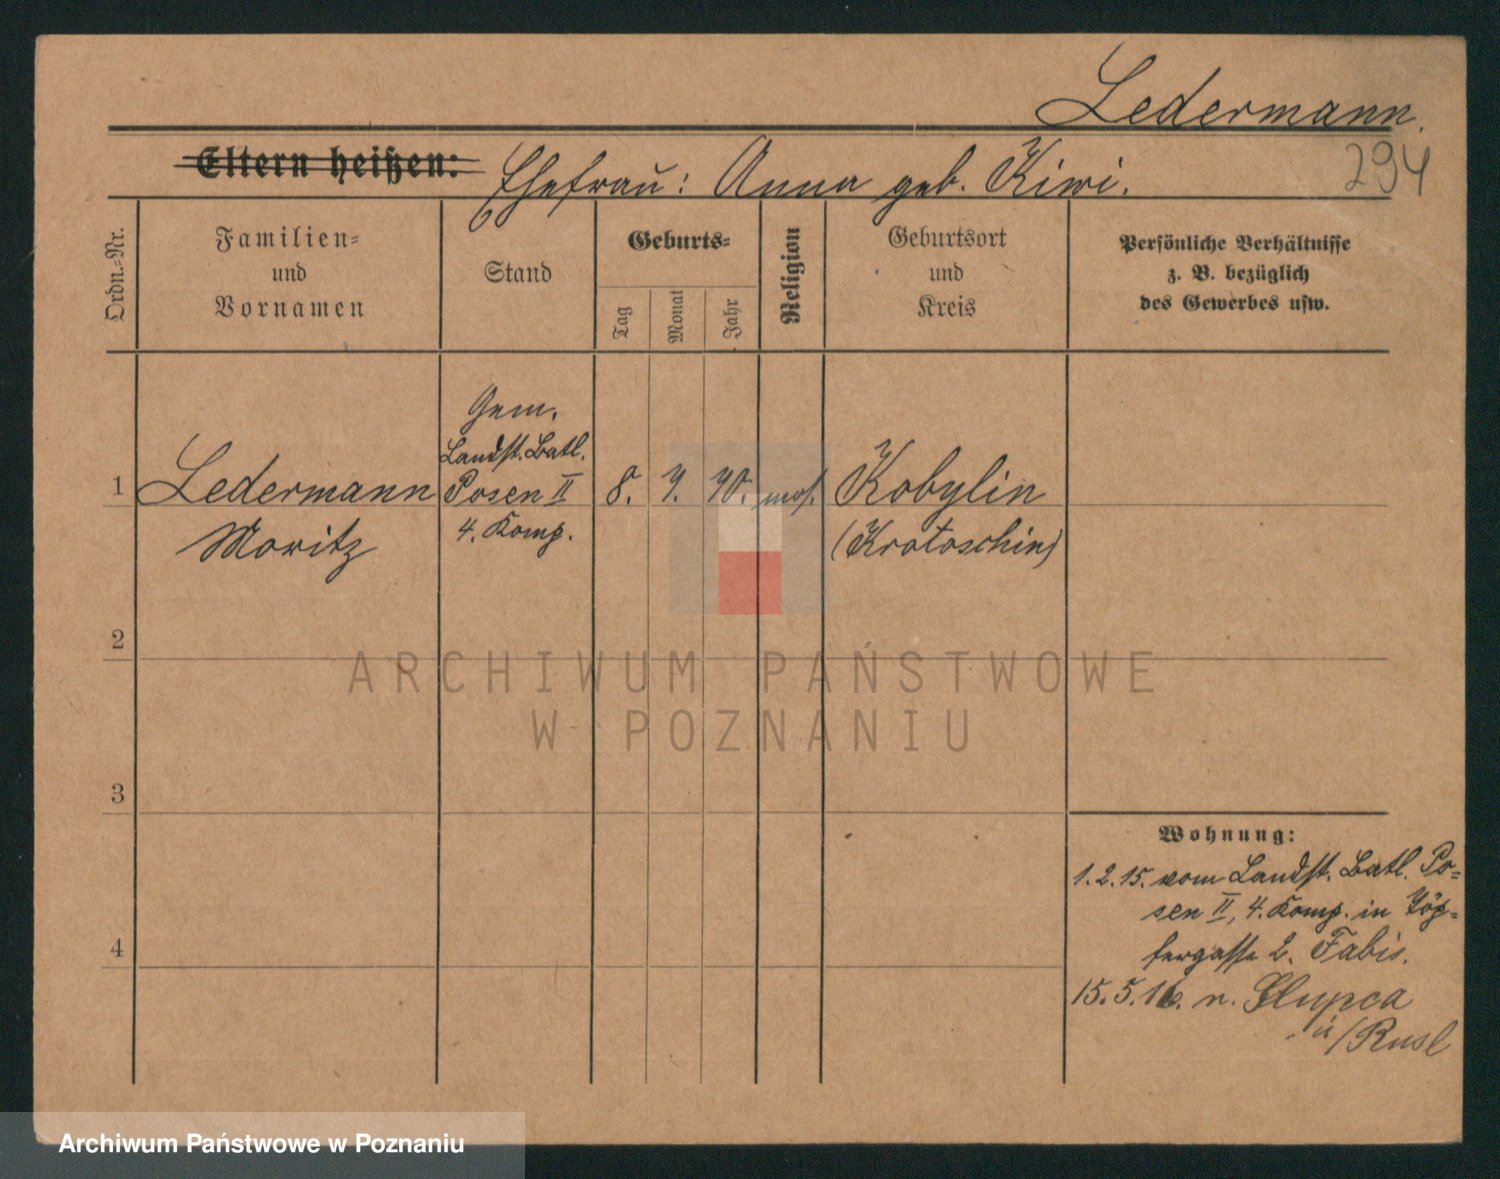 Ledermann.
294
Eltern heißen: Ehefrau: Anna geb. Kiwi.
Ordn.-Nr.
Familien-
und
Vornamen
Stand
Geburts-
Tag
Monat
Jahr
Religion
Geburtsort
und
Kreis
Persönliche Verhältnisse
z. B. bezüglich
des Gewerbes usw.
Gem.
Landst. Batl.
1 Ledermann Posen II 8. 9. 70. mos. Kobylin
Moritz 4. Komp. (Krotoschin)
2
3
4
Wohnung:
1.2.15. vom Landst. Batl. Po=
sen II, 4. Komp. in Töp=
fergasse 2. Fabis.
15.5.16. n. Slupca
i/Rusl
ARCHIWUM PAŃSTWOWE
W POZNANIU
Archiwum Państwowe w Poznaniu